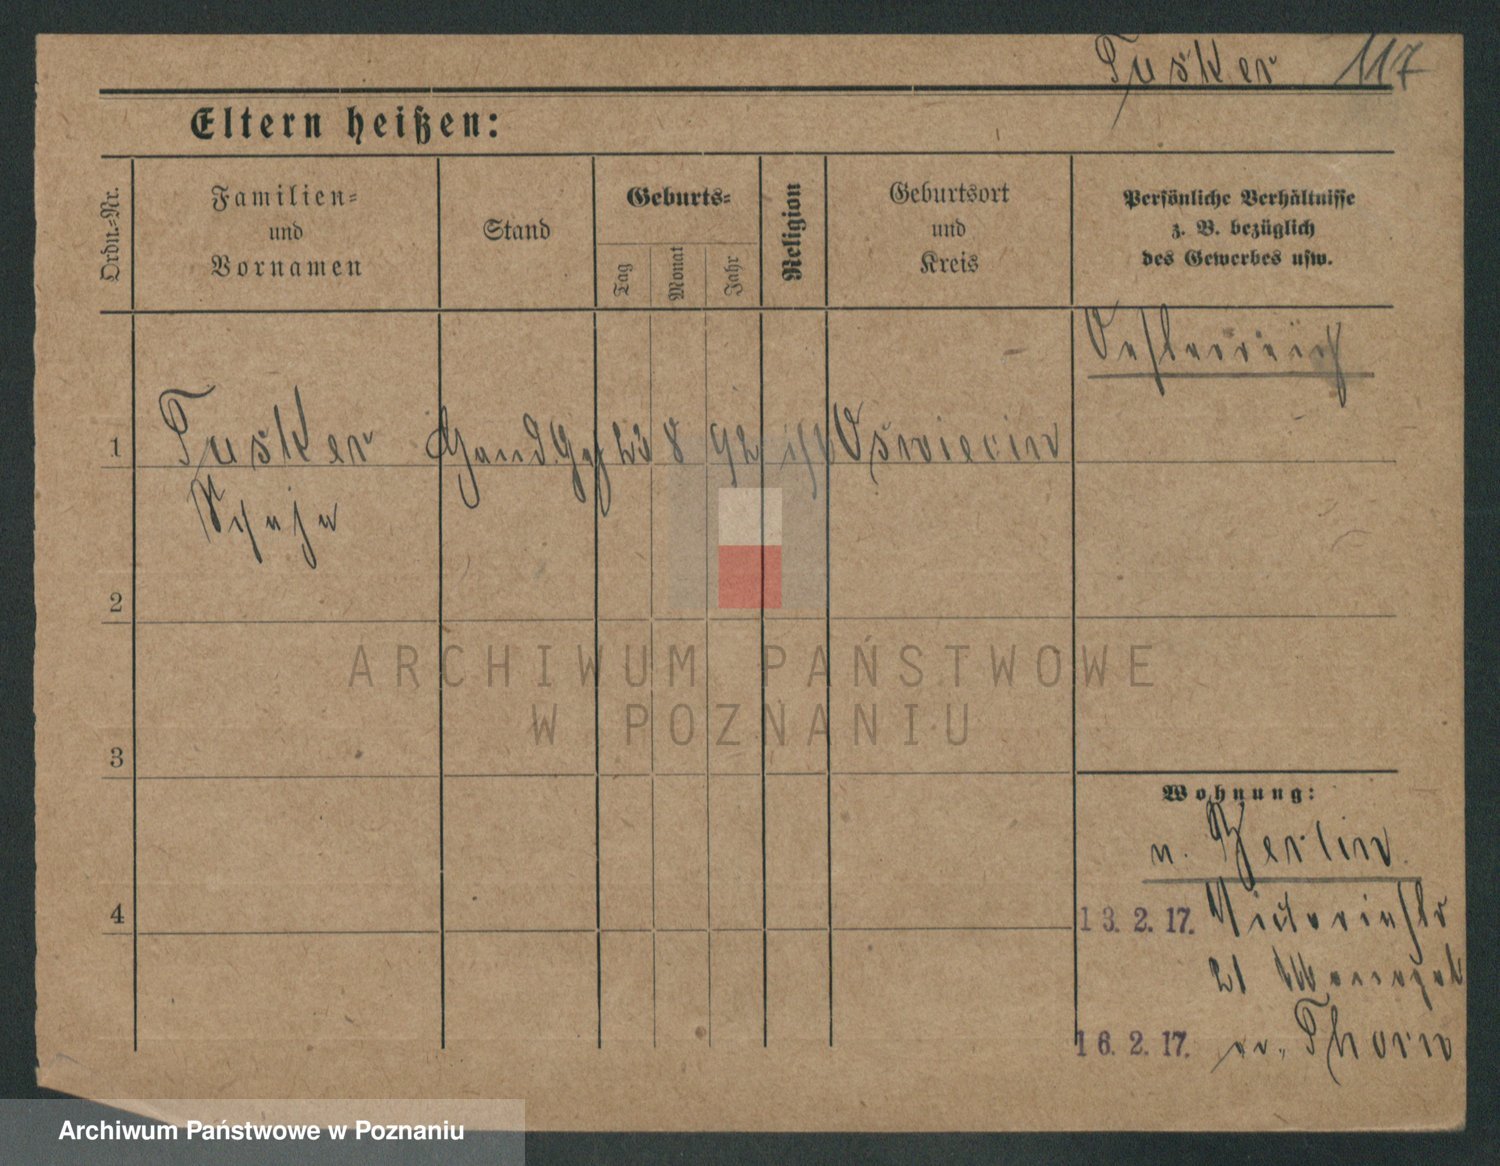 Tusker 117
Eltern heißen:
Ordn.-Nr.
Familien-
und
Vornamen
Stand
Geburts-
Tag
Monat
Jahr
Religion
Geburtsort
und
Kreis
Persönliche Verhältnisse
z. B. bezüglich
des Gewerbes usw.
Oesterreich
1 Tusker Hand.Geh 23 8 92 isr Oswiecim
Schaja
2
3
4
Wohnung:
n. Berlin
13. 2. 17. Victoriastr
21
16. 2. 17. Thorn
ARCHIWUM PAŃSTWOWE
W POZNANIU
Archiwum Państwowe w Poznaniu